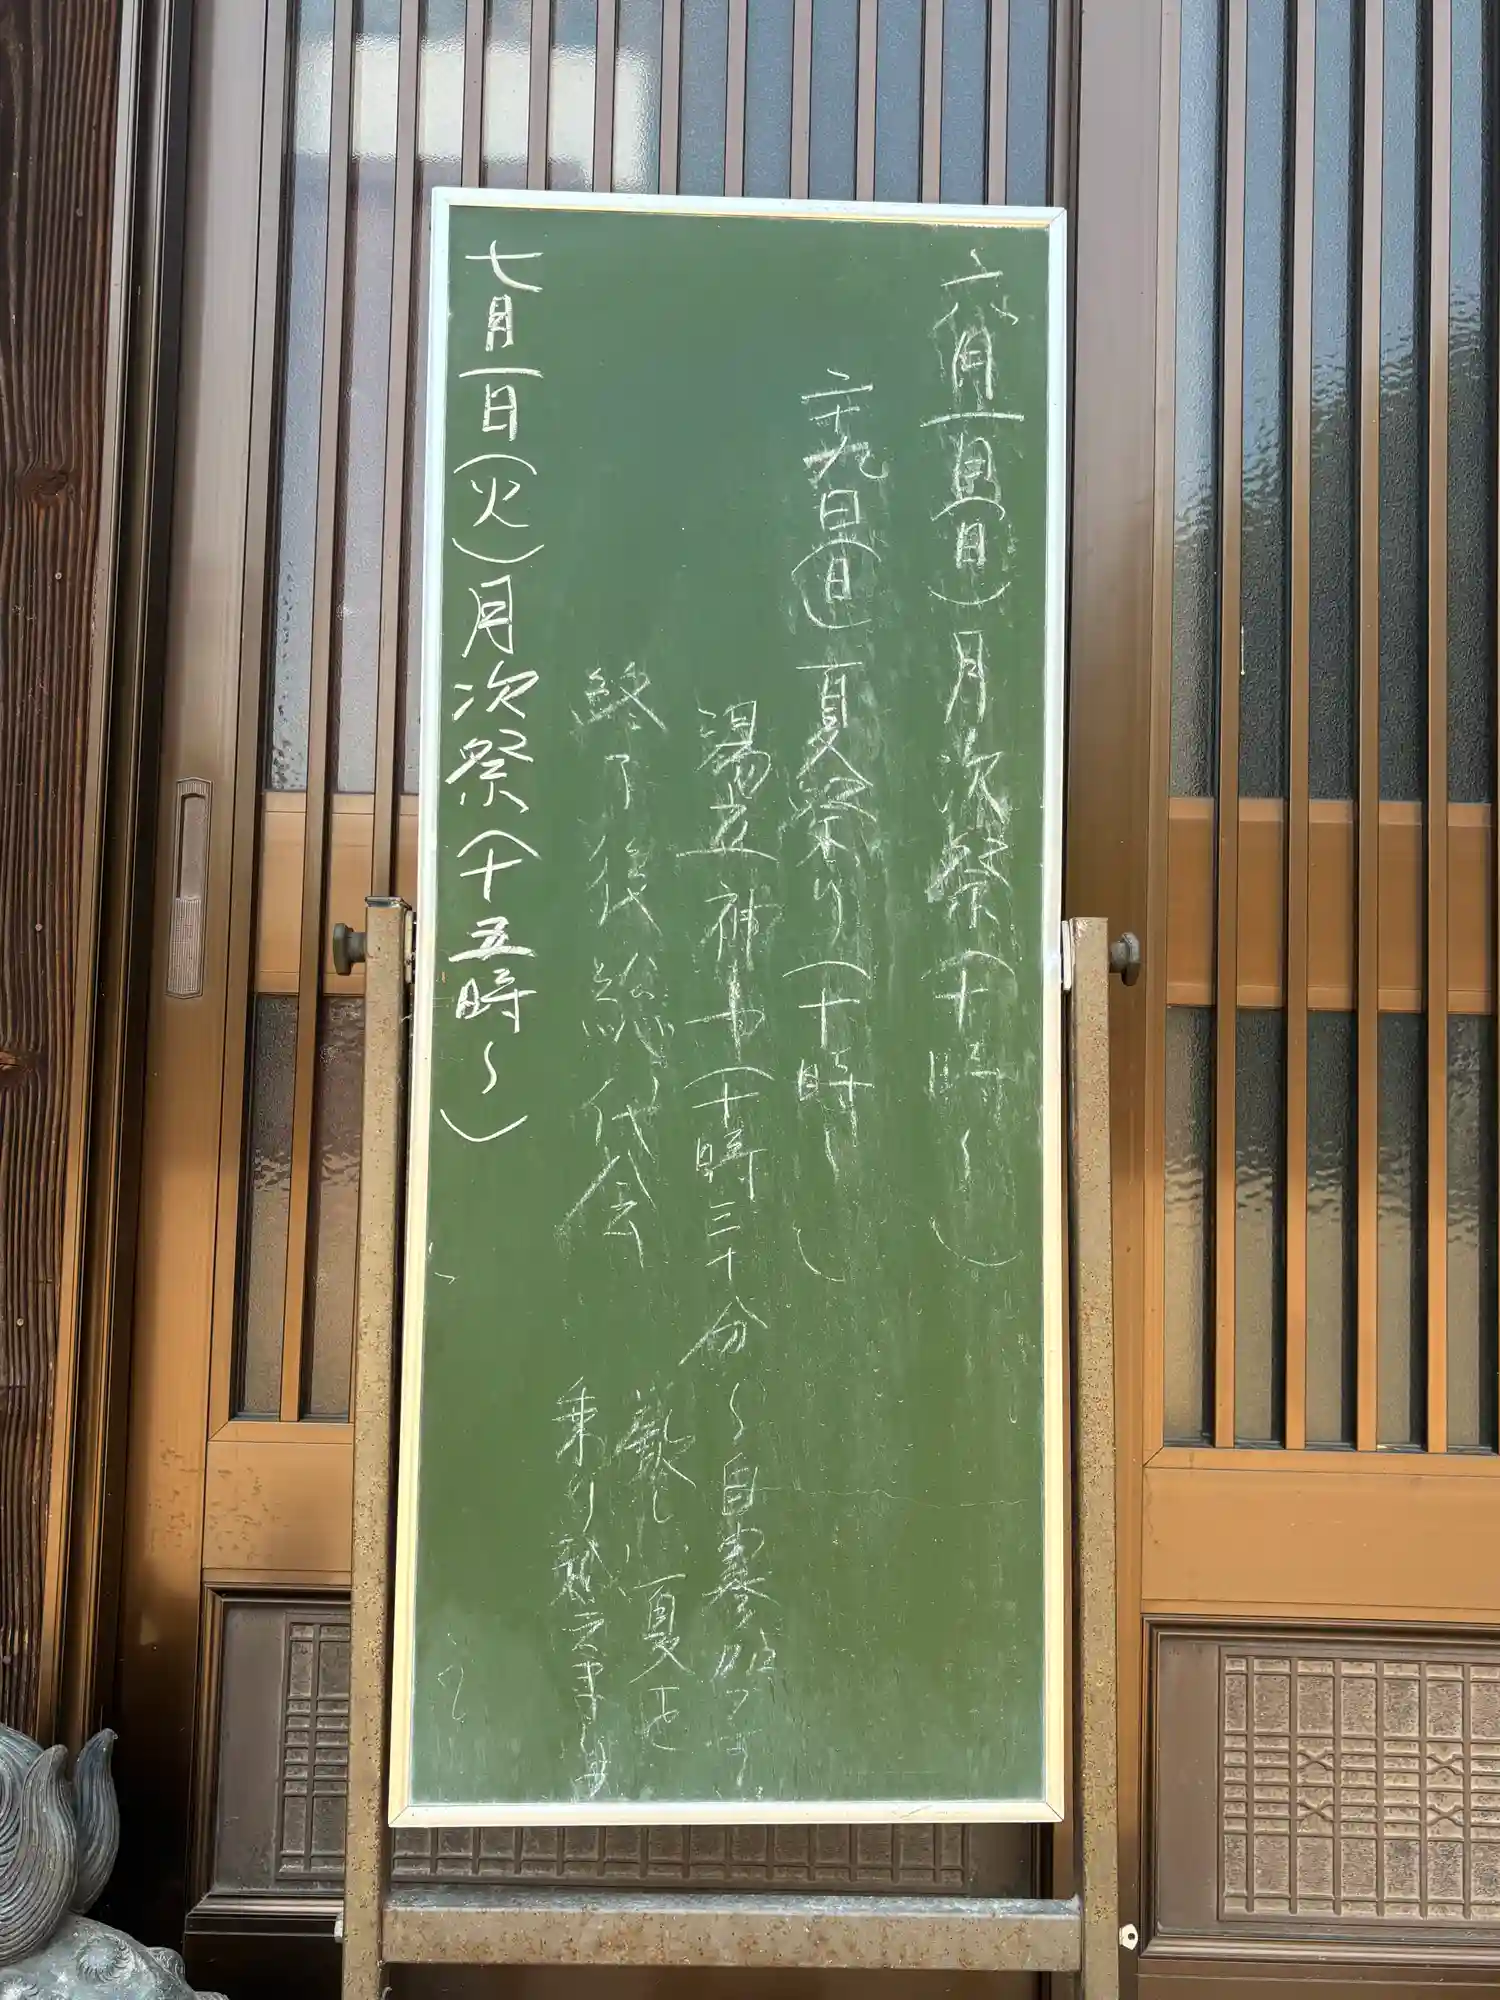 六月一日(日)月次祭(十時〜)
二十九日(日)夏祭り(十時〜)
湯立神じ(十時三十分〜自寿殿です
終了後総代会
厳しい夏を
乗り越えましょ
七月一日(火)月次祭(十五時〜)